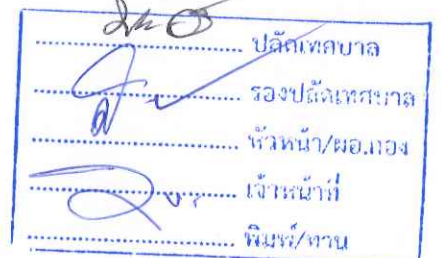 ปลัดเทศบาล
รองปลัดเทศบาล
หัวหน้า/ผอ.กอง
เจ้าหน้าที่
พิมพ์/ทาน